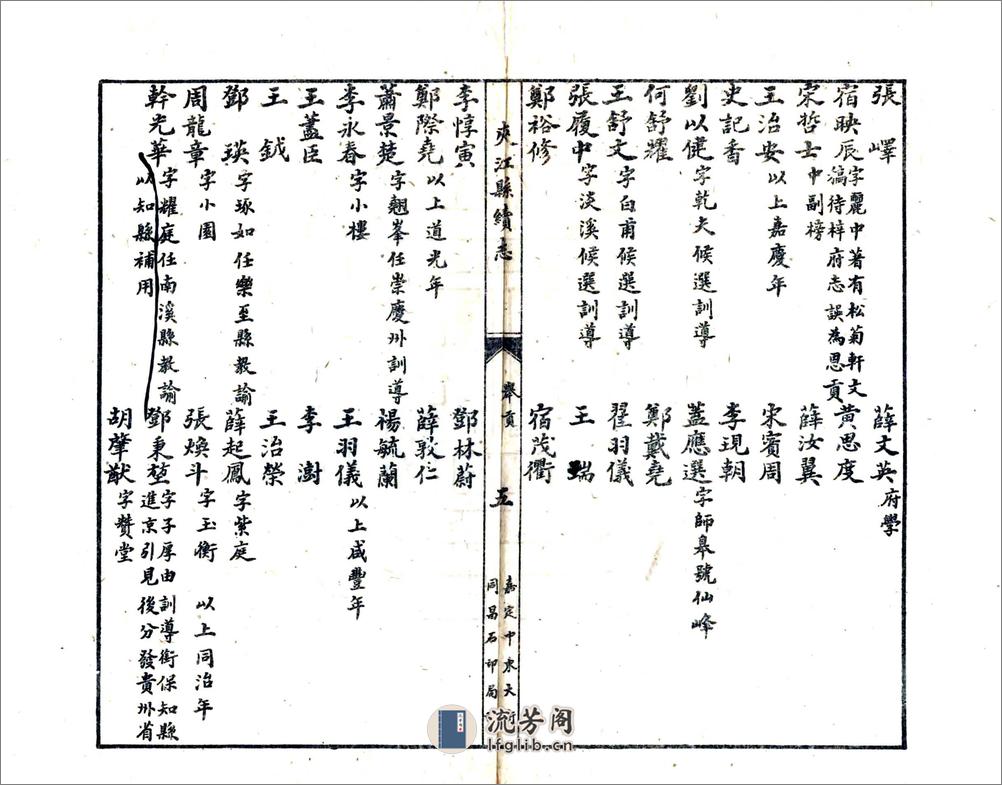 張嶧　薛文英府學
宿映辰字麗中著有松菊軒文
稿待梓府志誤為思貢
黃思度
宋哲士中副榜　薛汝翼
王治安以上嘉慶年　宋賓周
史記香　李現朝
劉以健字乾夫候選訓導　蓋應選字師皋號仙峰
何舒耀　鄭戴堯
王舒文字白甫候選訓導　翟羽儀
張履中字淡溪候選訓導　王瑞
鄭裕修　宿茂衢
夾江縣續志　舉貢　五
嘉定中東大街
同昌石印局
李惇寅　鄧林蔚
鄭際堯以上道光年　薛敦仁
蕭景楚字翹峯任崇慶州訓導　楊毓蘭
李永春字小樓　王羽儀以上咸豐年
王藎臣　李澍
王鉞　王治榮
鄧瑛字琢如任樂至縣教諭　薛起鳳字紫庭
周龍章字小園　張煥斗字玉衡　以上同治年
幹光華字耀庭任南溪縣教諭
以知縣補用
鄧秉堃字子厚由訓導銜保知縣
進京引見後分發貴州省
胡肇猷字贊堂
流芳阁
lfglib.cn